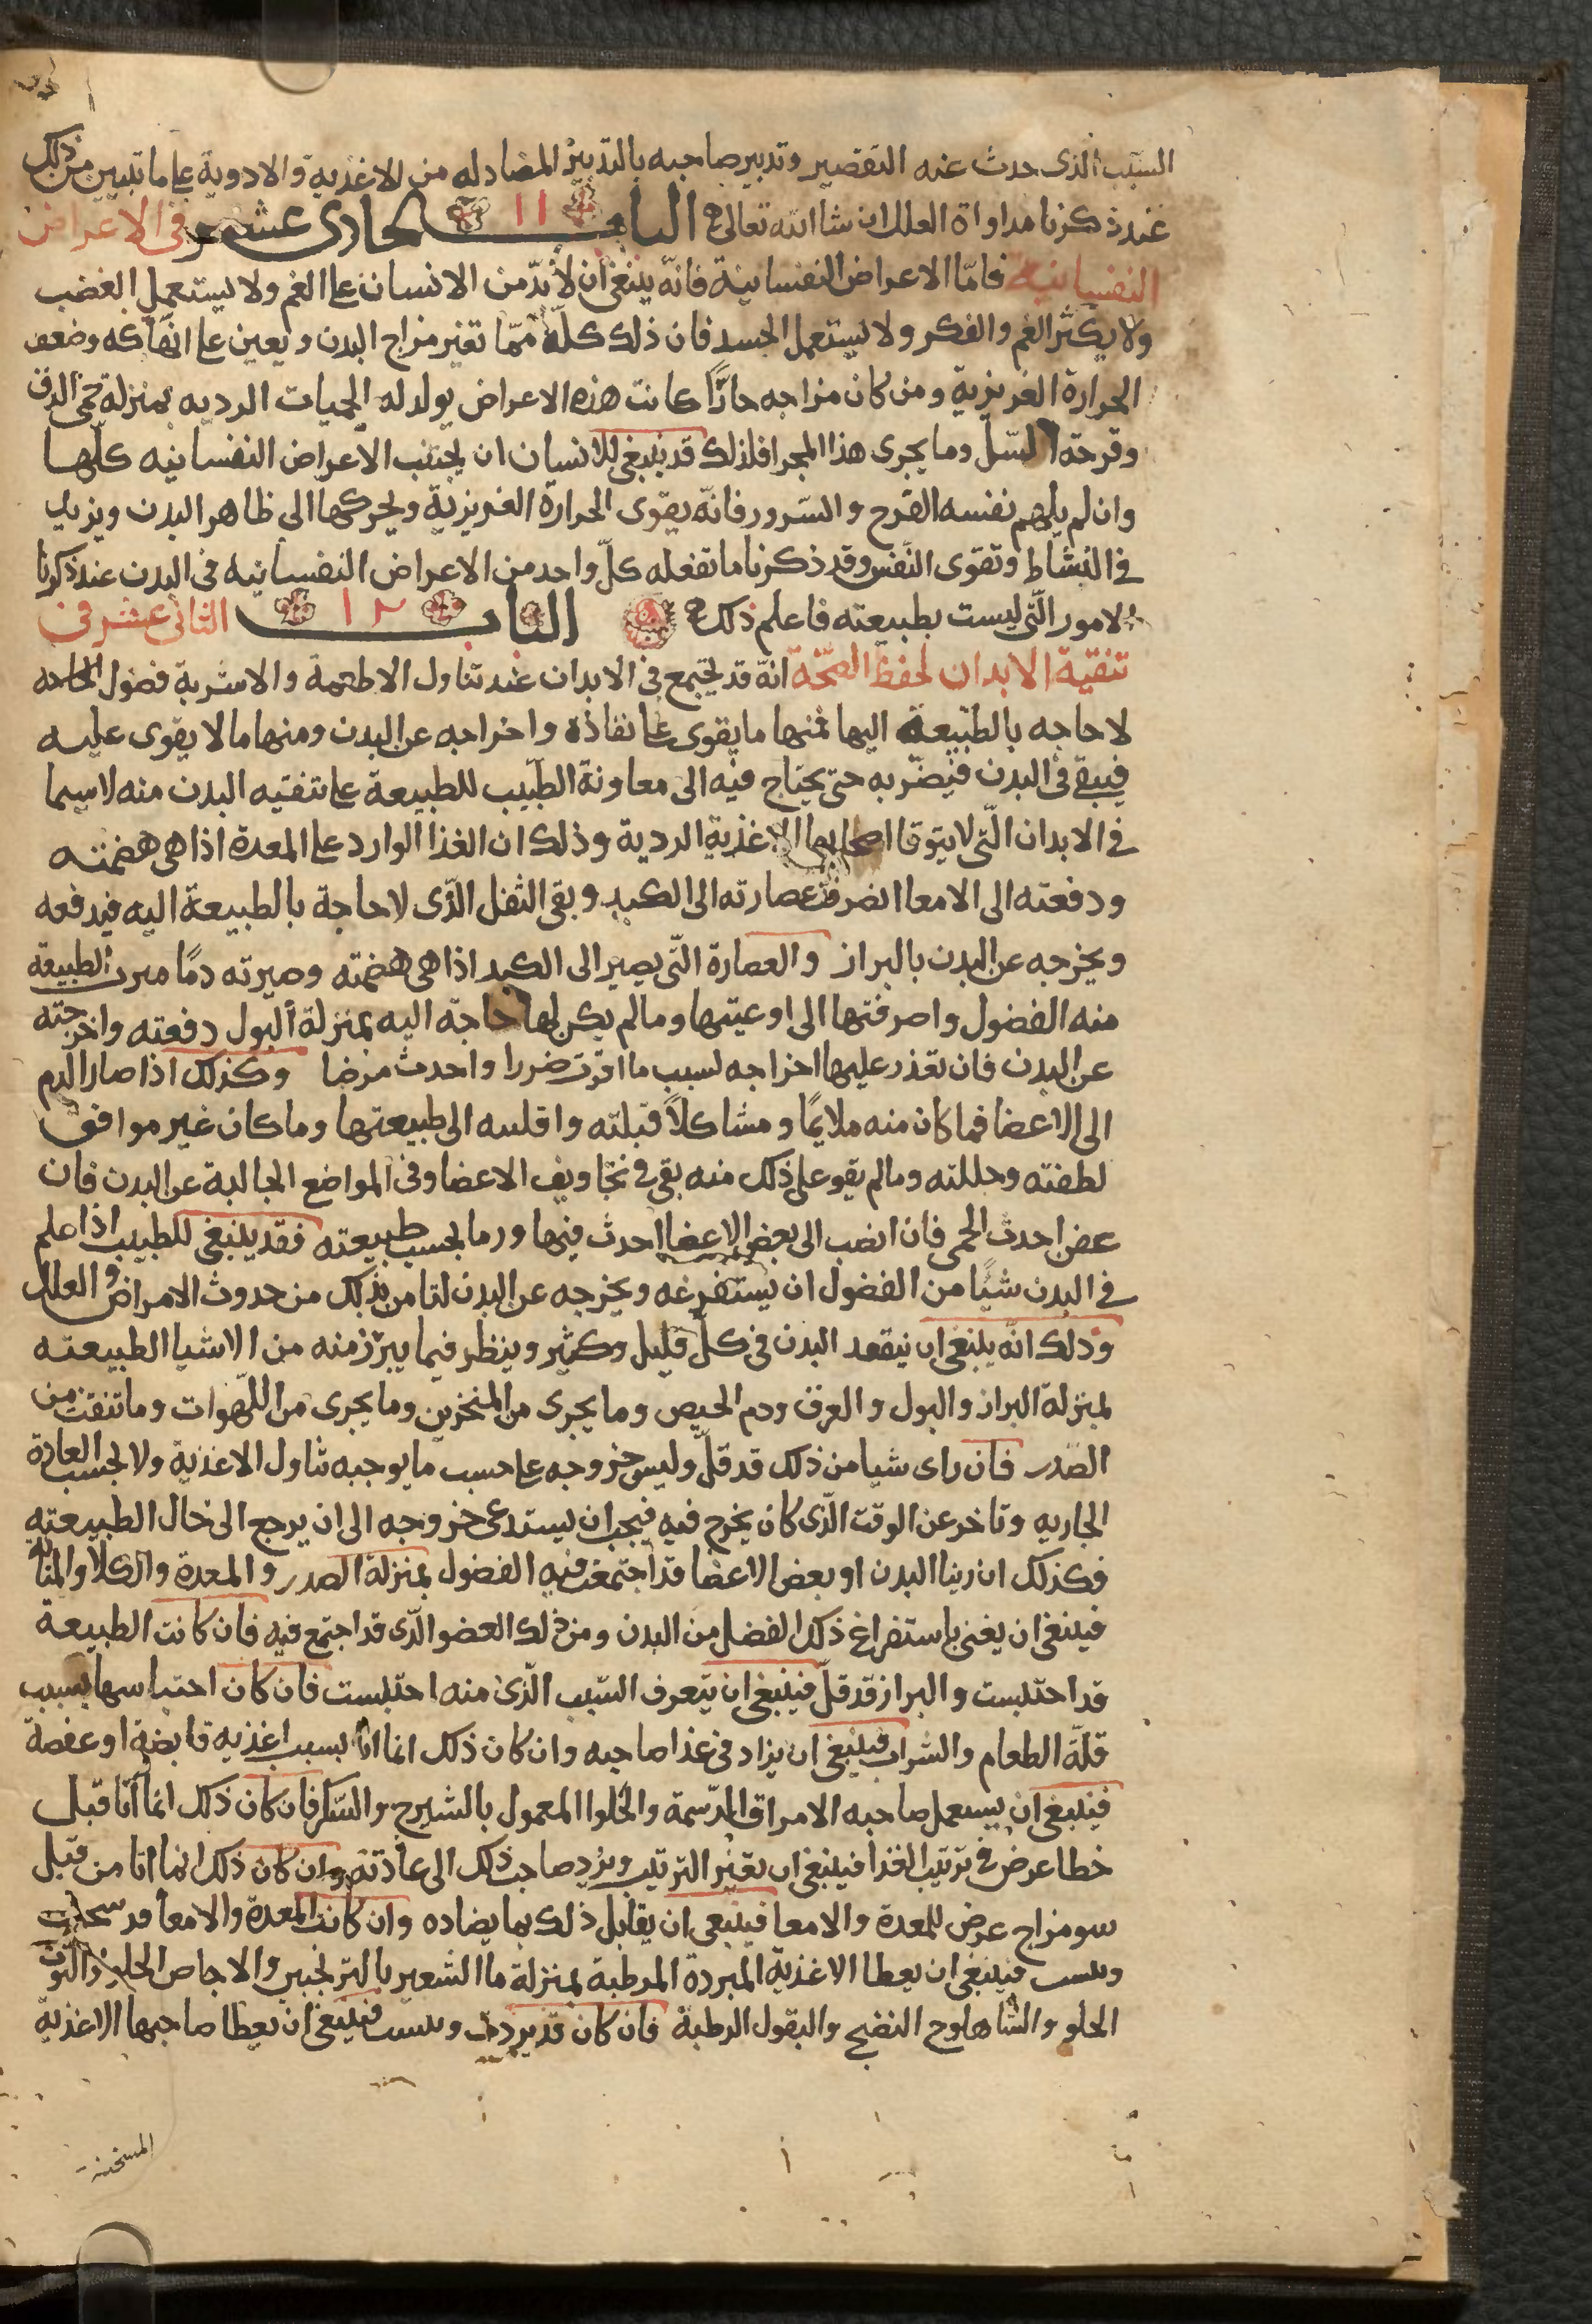 السبب الذى حدث عنه التقصير وتدبير صاحبه بالتدبير المضاد له من الاغذية والادوية على ما تبيين من ذلك
عند ذكرنا مداواة العلل ان شا الله تعالى الباب ١١ الحادى عشر فى الاعراض
النفسانيه فامّا الاعراض النفسانية فانّه ينبغى ان لا بدّ من الانسان على الغم ولا يستعمل الغضب
ولا يكثر الغم والفكر ولا يستعمل الحسد فان ذلك كلّه ممّا تغير مزاج البدن ويعين على انهاكه وضعف
الحرارة الغريزية ومن كان مزاجه حارًّا كانت هذه الاعراض يولد له الحميات الرديه بمنزلة حمى الدق
وقرحة السّل وما يجرى هذا المجرا فلذلك قد ينبغى للانسان ان يجتنب الاعراض النفسانيه كلّها
وان لم يلهم نفسه الفرح والسّرور فانّه يقوى الحرارة الغريزية ويحركها الى ظاهر البدن ويزيد
فى النشاط وتقوى النّفس وقد ذكرنا ما تفعله كلّ واحد من الاعراض النفسانيه فى البدن عند ذكرنا
الامور الّتى ليست بطبيعته فاعلم ذلك الباب ١٢ الثانى عشر فى
تنقية الابدان لحفظ الصّحّة انّه قد يجتمع فى الابدان عند تناول الاطعمة والاشربة فضول
لا حاجه بالطّبيعة اليها فمنها ما يقوى على نفاذه واخراجه عن البدن ومنها ما لا يقوى عليه
فيبقى فى البدن فيضرّ به حتى يحتاج فيه الى معاونة الطّبيب للطبيعة على تنقيه البدن منه لاسيما
فى الابدان الّتى لا يتوقا اصحابها الاغذية الردية وذلك ان الغذا الوارد على المعدة اذا هى هضمته
ودفعته الى الامعا انصرفت عصارته الى الكبد وبقى الثفل الّذى لا حاجة بالطبيعة اليه فيدفعه
ويخرجه عن البدن بالبراز والعصارة الّتى يصير الى الكبد اذا هى هضمته وصيرته دمًا ميزت الطبيعة
منه الفضول واصرفتها الى اوعيتها وما لم يكن لها حاجة اليه بمنزلة البول دفعته واخرجته
عن البدن فان تعذر عليها اخراجه لسبب ما اثرت ضررا واحدث مرضا وكذلك اذا صار الدم
الى الاعضا فما كان منه ملايمًا ومشاكلاً قبلته واقلبه الى طبيعتها وما كان غير موافق
لطفته وحللته وما لم يقو على ذلك منه بقى فى تجاويف الاعضا وفى المواضع الخالية عن البدن فان
عفن احدث الحمى فان انصب الى بعض الاعضا احدث فيها ورما بحسب طبيعته فقد ينبغى للطبيب اذا علم
فى البدن شيًا من الفضول ان يستفرغه ويخرجه عن البدن لتامن بذلك من حدوث الامراض والعلل
وذلك انّه ينبغى ان يتفقد البدن فى كلّ قليل وكثير وينظر فيما يبرز منه من الاشيا الطبيعته
بمنزلة البراز والبول والعرق ودم الحيض وما يجرى من المنخرين وما يجرى من اللّهوات وما تنفث من
الصّدر فان راى شيا من ذلك قد قلّ وليس خروجه على حسب ما يوجبه تناول الاغذية ولا بحسب العادة
الجاريه وتاخر عن الوقت الّذى كان يخرج فيه فيجب ان يستدعى خروجه الى ان يرجع الى حال الطبيعتيه
فكذلك ان رينا البدن او بعض الاعضا قد اجتمعت فيه الفضول بمنزلة الصدر والمعدة والكلا والمثانه
فينبغى ان يغنى باستفراغ ذلك الفضل من البدن ومن ذلك العضو الّذى قد اجتمع فيه فان كانت الطبيعة
قد احتبست والبراز قد قلّ فينبغى ان يتعرف السّبب الّذى منه احتبست فان كان احتباسها بسبب
قلّة الطعام والشراب فينبغى ان يزاد فى غذا صاحبه وان كان ذلك انما اتا بسبب اغذيه قابضة او عفصة
فينبغى ان يستعمل صاحبه الامراق الدّسمة والحلوا المعمول بالشيرج والسّكر فان كان ذلك انما اتا قبل
خطا عرض فى ترتيب الغذا فينبغى ان يغير الترتيب ويرد صاحب ذلك الى عادته وان كان ذلك انما اتا من قبل
سو مزاج عرض للمعدة والامعا فينبغى ان يقابل ذلك بما يضاده وان كانت المعدة والامعا قد سخنت
ويبست فينبغى ان يعطا الاغذية المبردة المرطبة بمنزلة ما الشعير بالترنجبين والاجاص الحلو والتوت
الحلو والشاهلوج النضيج والبقول الرطبة فان كان قد بردت ويبست فينبغى ان يعطا صاحبها الاغذية
المسخنة